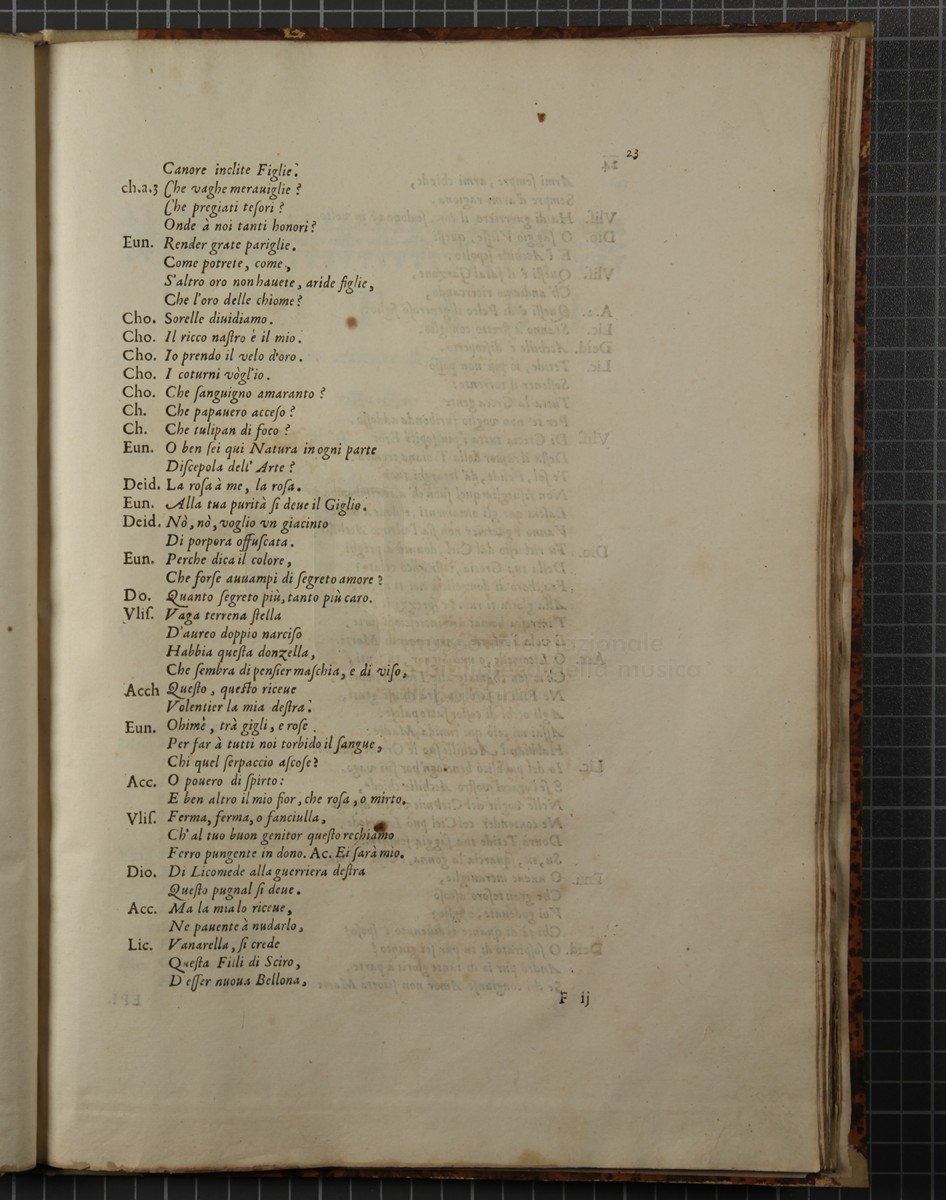 23
Canore inclite Figlie.
ch.a.3 Che vaghe merauiglie ?
Che pregiati teſori ?
Onde à noi tanti honori ?
Eun. Render grate pariglie.
Come potrete, come,
S'altro oro non hauete, aride figlie,
Che l'oro delle chiome ?
Cho. Sorelle diuidiamo.
Cho. Il ricco naſtro è il mio.
Cho. Io prendo il velo d'oro.
Cho. I coturni vògl'io.
Cho. Che ſanguigno amaranto ?
Ch. Che papauero acceſo ?
Ch. Che tulipan di foco ?
Eun. O ben ſei qui Natura in ogni parte
Diſcepola dell' Arte ?
Deid. La roſa à me, la roſa.
Eun. Alla tua purità ſi deue il Giglio.
Deid. Nò, nò, voglio vn giacinto
Di porpora offuſcata.
Eun. Perche dica il colore,
Che forſe auuampi di ſegreto amore ?
Do. Quanto ſegreto più, tanto più caro.
Vliſ. Vaga terrena ſtella
D'aureo doppio narciſo
Habbia queſta donzella,
Che ſembra di penſier maſchia, e di viſo,
Acch Queſto, queſto riceue
Volentier la mia deſtra.
Eun. Ohimè, trà gigli, e roſe.
Per far à tutti noi torbido il ſangue,
Chi quel ſerpaccio aſcoſe ?
Acc. O pouero di ſpirto:
E ben altro il mio fior, che roſa, o mirto.
Vliſ. Ferma, ferma, o fanciulla,
Ch' al tuo buon genitor queſto rechiamo
Ferro pungente in dono. Ac. Ei ſarà mio.
Dio. Di Licomede alla guerriera deſtra
Queſto pugnal ſi deue.
Acc. Ma la mia lo riceue,
Ne pauente à nudarlo,
Lic. Vanarella, ſi crede
Queſta Filli di Sciro,
D eſſer nuoua Bellona,
F ij